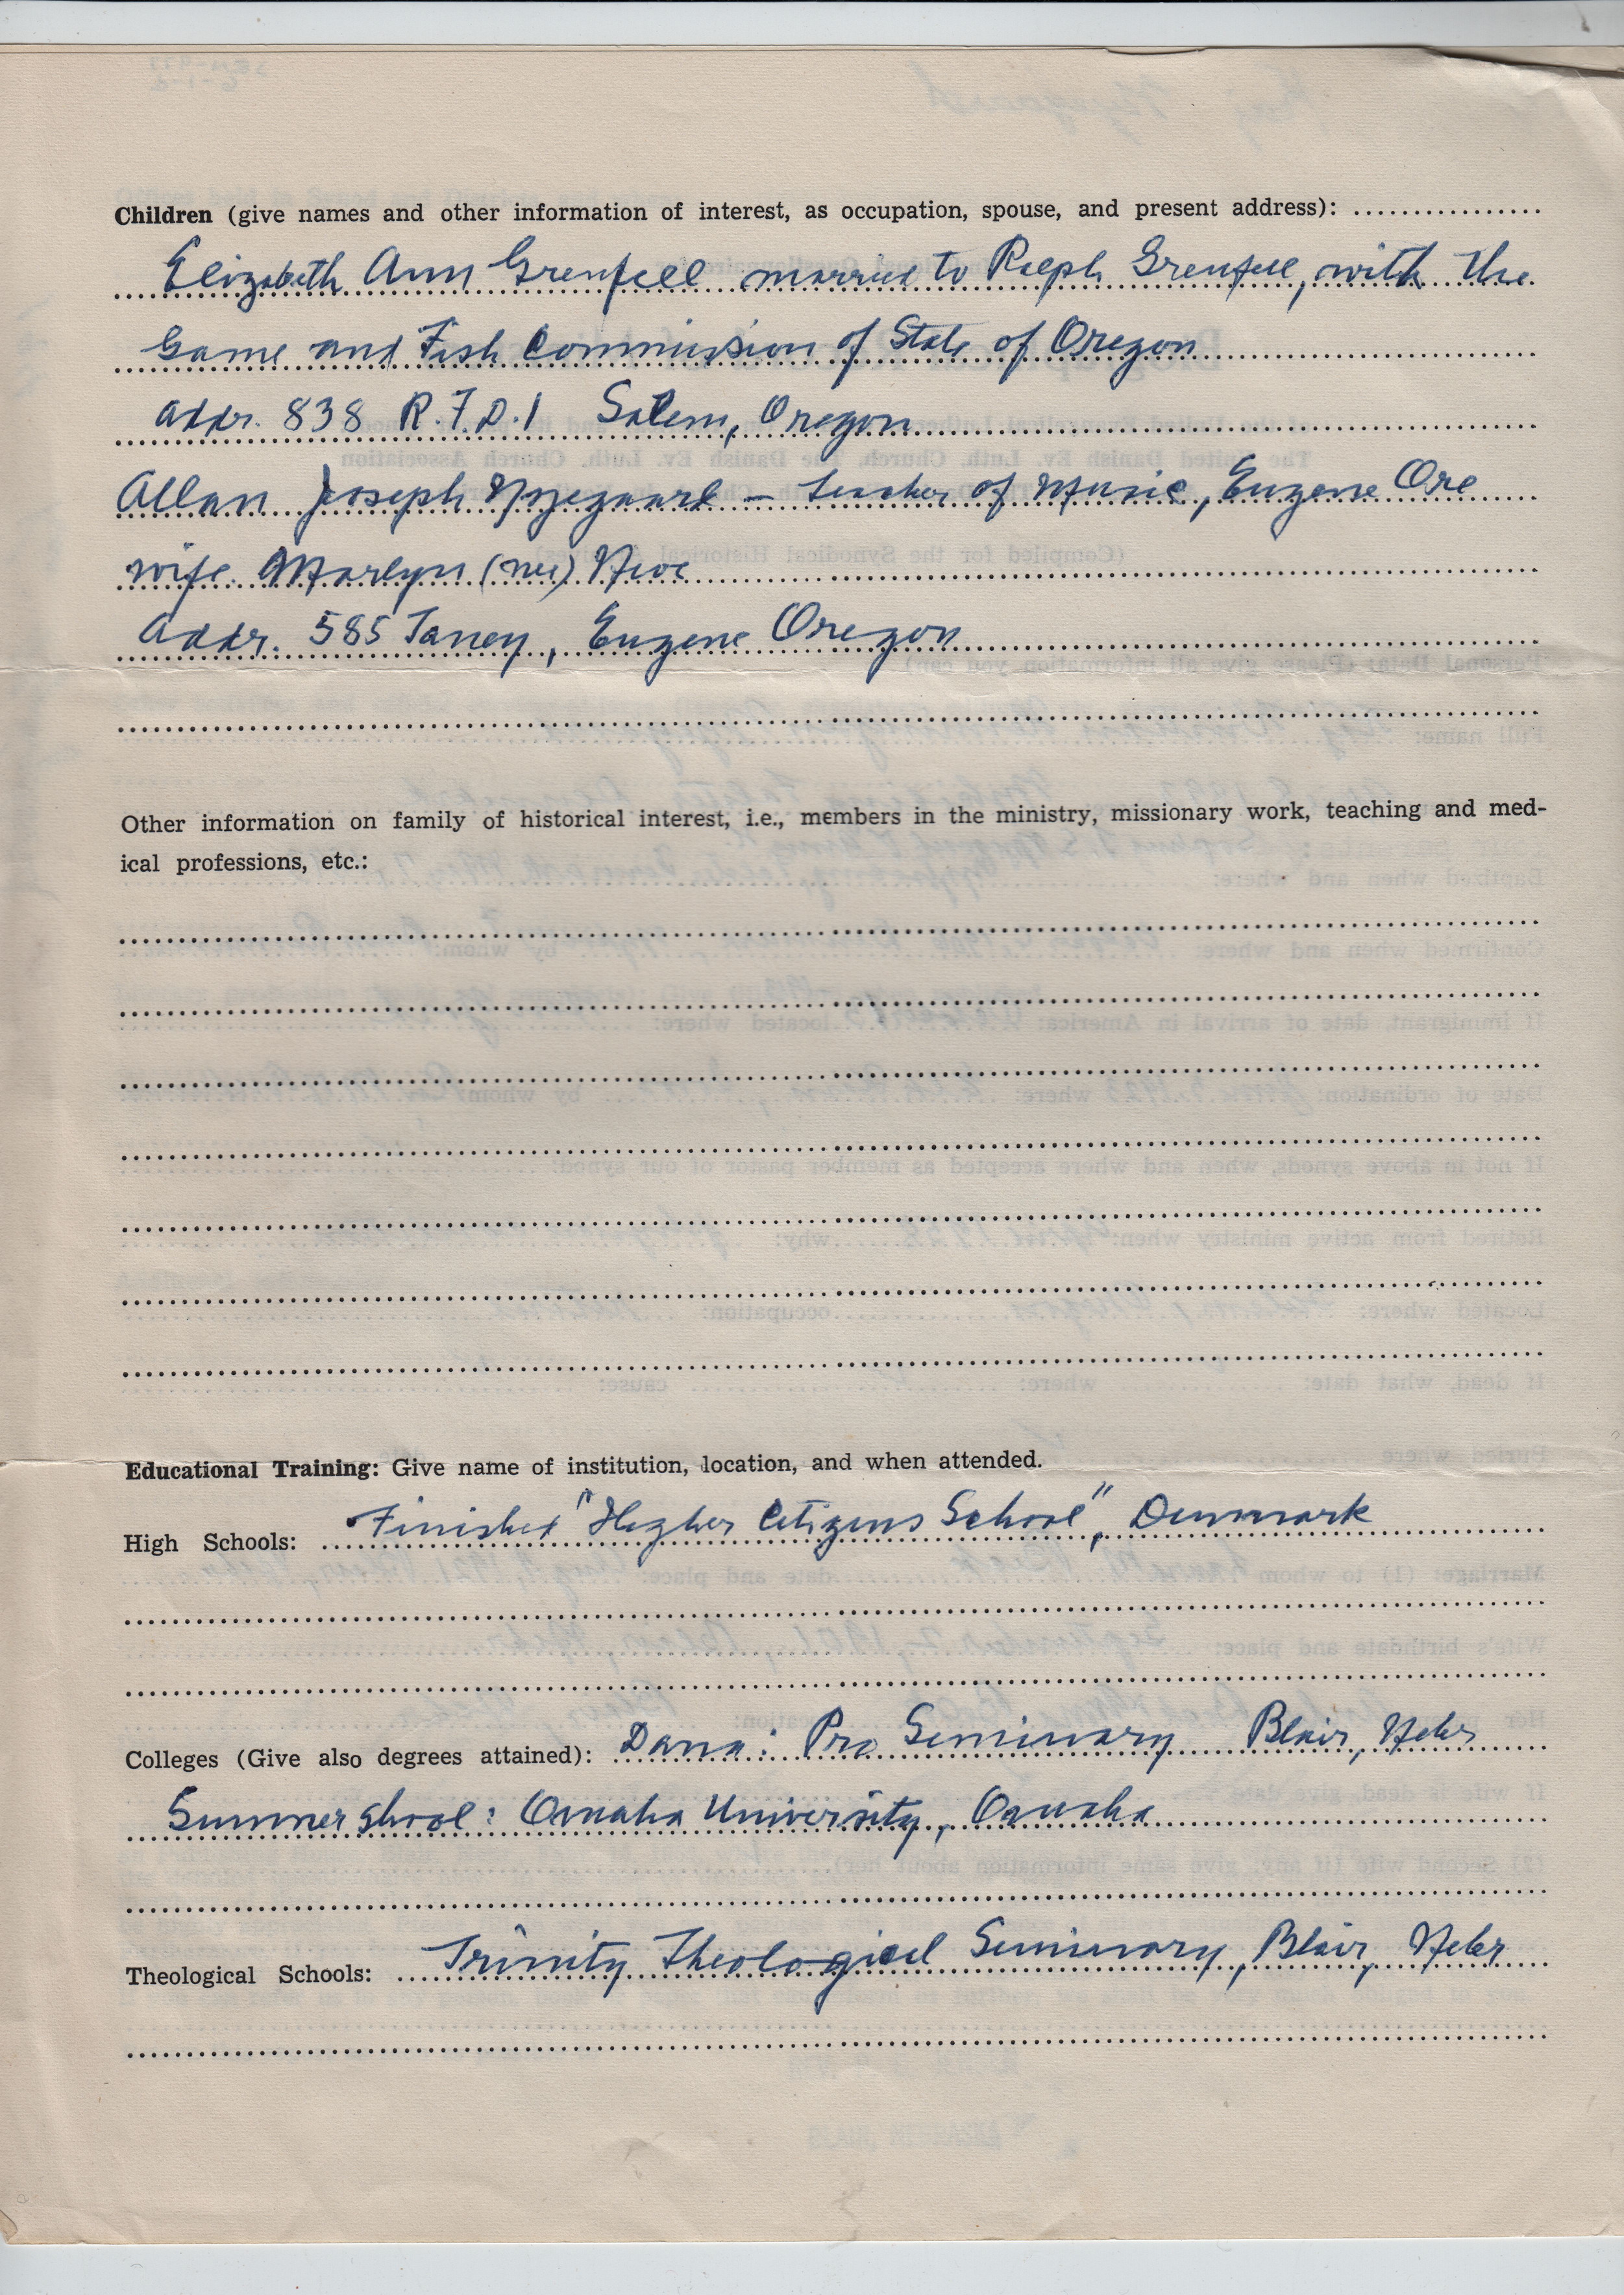 Children (give names and other information of interest, as occupation, spouse, and present address):
Elizabeth Ann Grenfell married to Ralph Grenfell, with the
Game and Fish Commission of State of Oregon
addr. 838 R.F.D.1 Salem, Oregon
Allan Joseph Nyegaard – teacher of Music, Eugene Ore
wife. Marlyn (nee)
Addr. 585 Taney, Eugene Oregon
Other information on family of historical interest, i.e., members in the ministry, missionary work, teaching and med-
ical professions, etc.:
Educational Training: Give name of institution, location, and when attended.
High Schools: Finished "Higher Citizens School", Denmark
Colleges (Give also degrees attained): Dana: Pro Seminary Blair, Nebr
Summer shool: Omaha University, Omaha
Theological Schools: Trinity Theological Seminary, Blair, Nebr